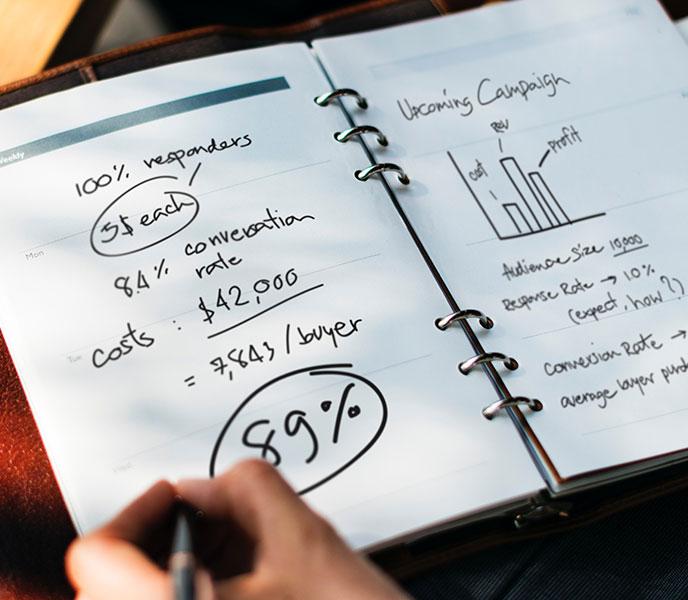 Weekly
100% responders
5$ each
Mon
8.4% conversation
rate
costs : $42,000
Tue
= 7,843 / buyer
89%
Upcoming Campaign
cost
Rev
Profit
Audience Size 10,000
Response Rate → 10%
(expect, how?)
Conversion Rate →
average buyer